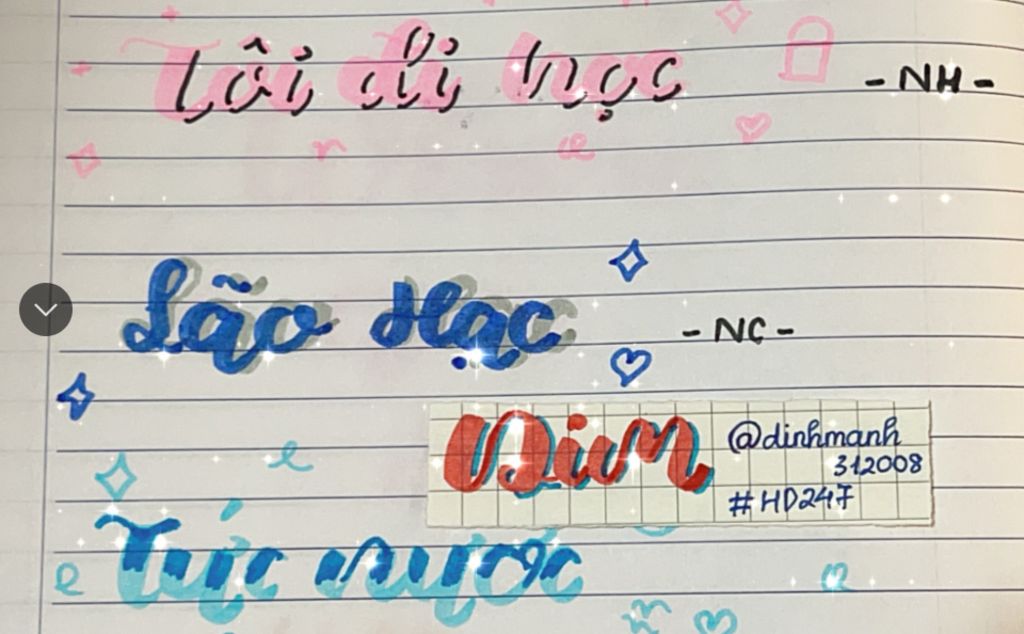 Tôi đi học
- NH -
Lão Hạc
- NC -
@dinhmanh
312008
#HD247
Tức nước